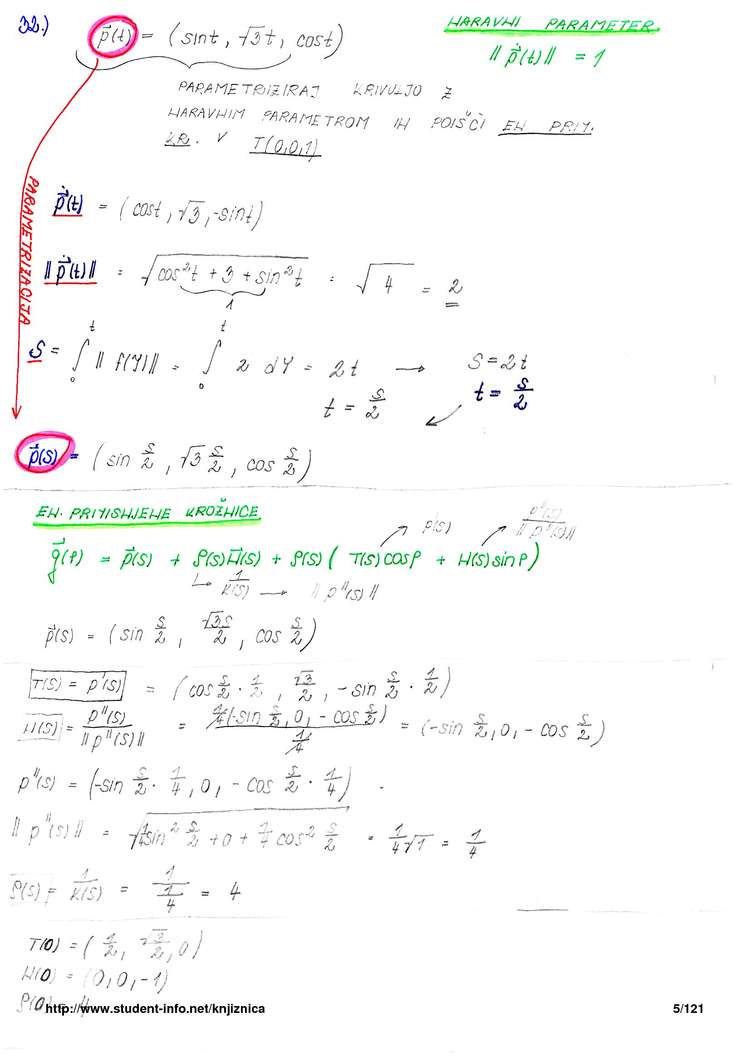 32.) p⃗(t) = (sint, √3t, cost)
NARAVNI PARAMETER
|| ṗ⃗(t) || = 1
PARAMETRIZIRAJ KRIVULJO Z
NARAVNIM PARAMETROM IN POIŠČI EN. PRIT.
KR. V T(0,0,1)
PARAMETRIZACIJA
ṗ⃗(t) = (cost, √3, -sint)
|| ṗ⃗(t) || = √(cos²t + 3 + sin²t) = √4 = 2
1
S = ∫₀ᵗ || f(φ) || = ∫₀ᵗ 2 dφ = 2t → S = 2t
t = s/2 t = s/2
p⃗(s) = (sin s/2, √3 s/2, cos s/2)
EN. PRITISNJENE KROŽNICE
p'(s) p''(s)/||p''(s)||
g⃗(φ) = p⃗(s) + ρ(s)N⃗(s) + ρ(s) ( T(s) cosφ + N(s) sinφ )
↳ 1/K(s) → || p''(s) ||
p⃗(s) = (sin s/2, √3s/2, cos s/2)
T(s) = p'(s) = (cos s/2 · 1/2, √3/2, -sin s/2 · 1/2)
N(s) = p''(s)/||p''(s)|| = 1/4(-sin s/2, 0, -cos s/2)/(1/4) = (-sin s/2, 0, -cos s/2)
p''(s) = (-sin s/2 · 1/4, 0, -cos s/2 · 1/4)
|| p''(s) || = √(1/4 sin² s/2 + 0 + 1/4 cos² s/2) = 1/4 √1 = 1/4
ρ(s) = 1/K(s) = 1/(1/4) = 4
T(0) = (1/2, √3/2, 0)
N(0) = (0, 0, -1)
ρ(0) = 4
http://www.student-info.net/knjiznica 5/121